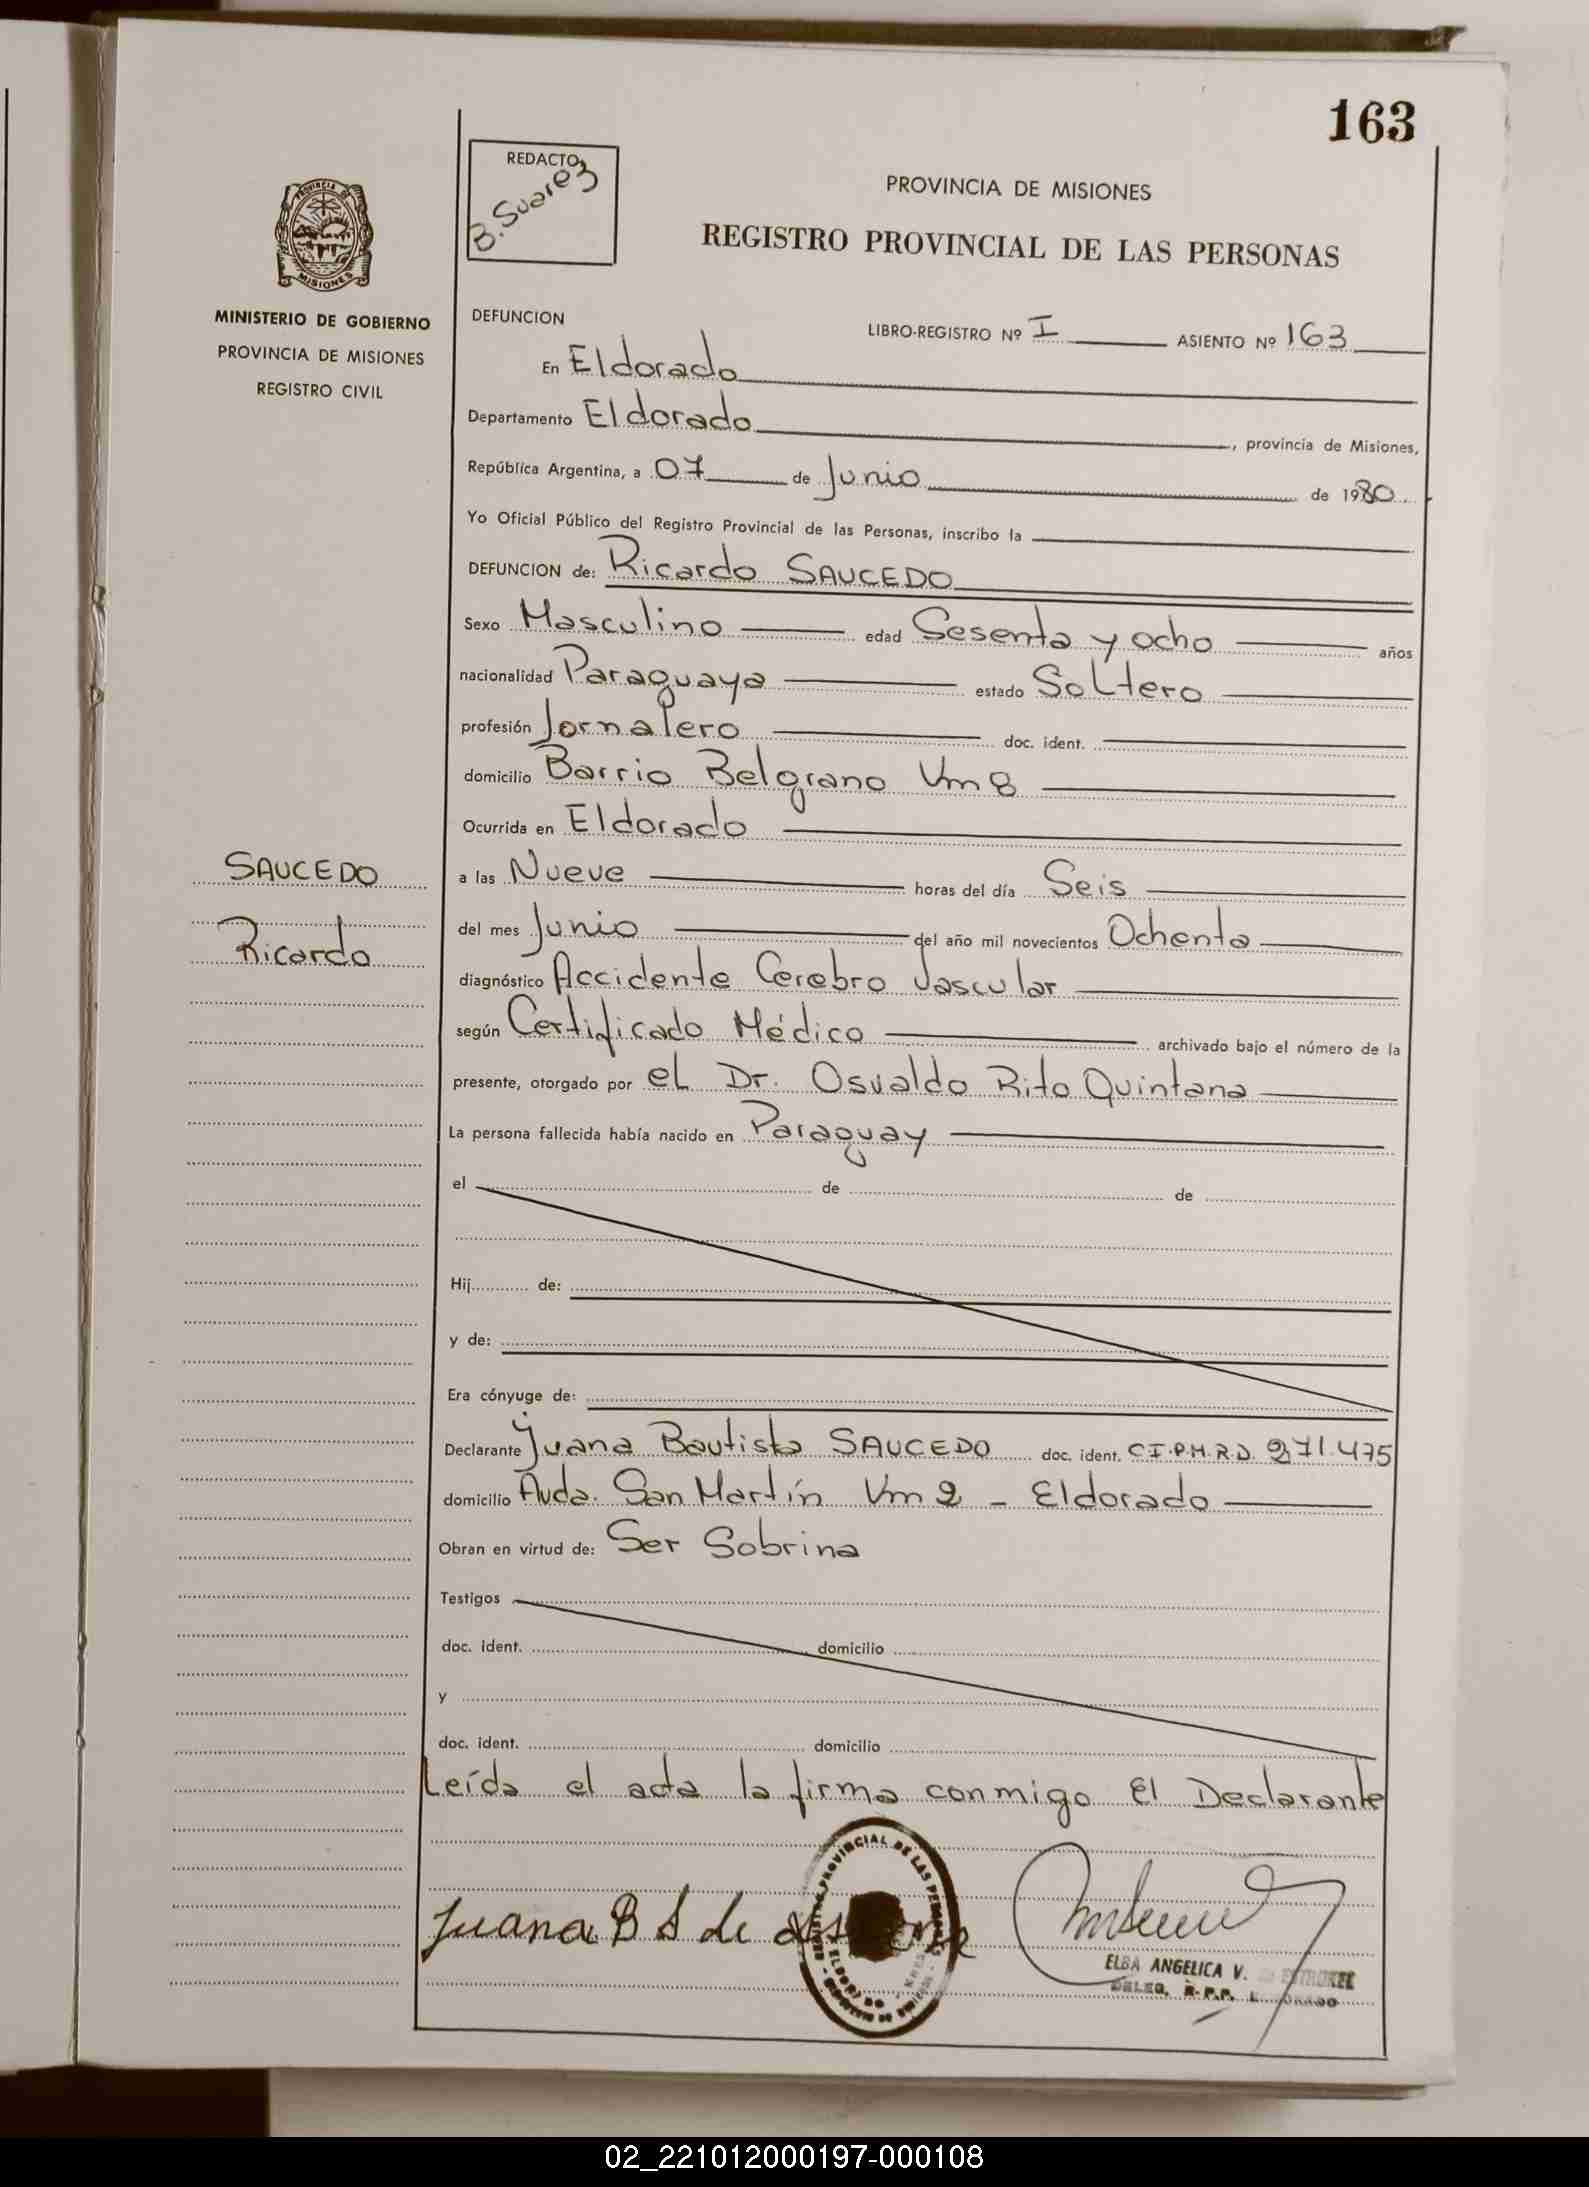 163
REDACTO
B. Suarez
PROVINCIA DE MISIONES
REGISTRO PROVINCIAL DE LAS PERSONAS
PROVINCIA DE
MISIONES
MINISTERIO DE GOBIERNO
PROVINCIA DE MISIONES
REGISTRO CIVIL
DEFUNCION
LIBRO-REGISTRO Nº I ASIENTO Nº 163
En Eldorado
Departamento Eldorado, provincia de Misiones,
República Argentina, a 07 de Junio de 1980
Yo Oficial Público del Registro Provincial de las Personas, inscribo la
DEFUNCION de: Ricardo SAUCEDO
Sexo Masculino edad Sesenta y ocho años
nacionalidad Paraguaya estado Soltero
profesión Jornalero doc. ident.
domicilio Barrio Belgrano Km 8
Ocurrida en Eldorado
SAUCEDO
Ricardo
a las Nueve horas del día Seis
del mes Junio del año mil novecientos Ochenta
diagnóstico Accidente Cerebro Vascular
según Certificado Médico archivado bajo el número de la
presente, otorgado por el Dr. Osvaldo Rito Quintana
La persona fallecida había nacido en Paraguay
el de de
Hij de:
y de:
Era cónyuge de:
Declarante Juana Bautista SAUCEDO doc. ident. C.I.P.M.R.D. 271.475
domicilio Avda. San Martín Km 2 - Eldorado
Obran en virtud de: Ser Sobrina
Testigos
doc. ident. domicilio
y
doc. ident. domicilio
Leída el acta la firma conmigo El Declarante
Juana B S de
REGISTRO PROVINCIAL DE LAS PERSONAS
ELDORADO
ELBA ANGELICA V.
DELEG. R.P.P. ELDORADO
02_221012000197-000108